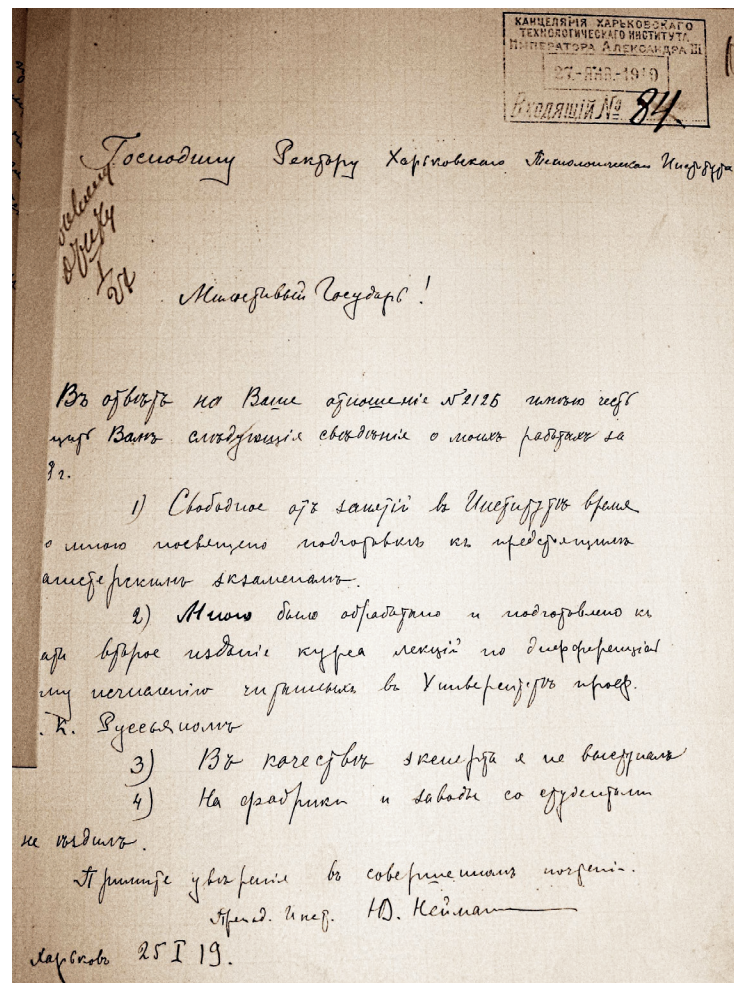 КАНЦЕЛЯРІЯ ХАРЬКОВСКАГО
ТЕХНОЛОГИЧЕСКАГО ИНСТИТУТА
ИМПЕРАТОРА АЛЕКСАНДРА III
27.-ЯНВ.-1919
Входящій № 84
Господину Ректору Харьковскаго Технологическаго Института
Милостивый Государь!
Въ отвѣтъ на Ваше отношеніе № 2126 имѣю честь
щить Вамъ слѣдующія свѣдѣнія о моихъ работахъ за
8 г.
1) Свободное отъ занятій въ Институтѣ время
о мною посвящено подготовкѣ къ предстоящимъ
агистерскимъ экзаменамъ.
2) Мною было обработано и подготовлено къ
ати второе изданіе курса лекцій по дифференціаль
му исчисленію читанныхъ въ Университетѣ проф.
. К. Руссьяномъ
3) Въ качествѣ эксперта я не выступалъ
4) На фабрики и заводы со студентами
не ѣздилъ.
Примите увѣренія въ совершенномъ почтеніи.
Препод. Инст. Ю. Нейман
Харьковъ 25 I 19.